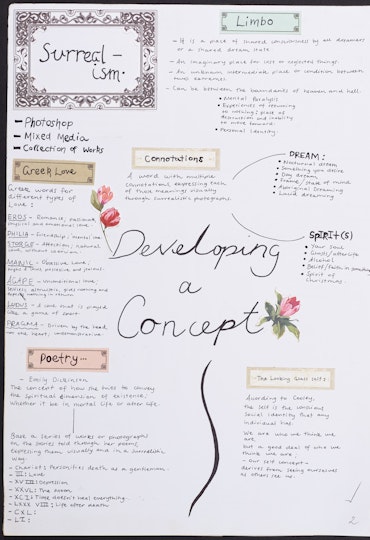 Surreal-
ism.
- Photoshop
- Mixed Media
- Collection of Works
Limbo
- It is a place of shared consciousness by all dreamers
or a shared dream state.
- An imaginary place for lost or neglected things.
- An unknown intermediate place or condition between
extremes.
- Can be between the boundaries of heaven and hell.
• Mental Paralysis
• Experience of returning
to nothing; place of
destruction and inability
to move forward.
• Personal Identity.
Connotations
A word with multiple
connotations, expressing each
of these meanings visually
through surrealist photographs.
DREAM:
• Nocturnal dream
• Something you desire
• Day dream
• Frame/state of mind
• Aboriginal Dreaming
• Lucid dreaming
SPIRIT(S)
• Your soul
• Ghosts/afterlife
• Alcohol
• Belief/faith in something
• Spirit of
Christmas.
Greek Love
Greek words for
different types of
Love:
EROS - Romance, passionate,
physical and emotional love.
PHILIA - Friendship, mental love
STORGE - Affection; natural
MANIC - Obsessive Love;
AGAPE - Unconditional love,
selfless, altruistic, gives nothing and
expects nothing in return
LUDUS - A love that is played
like a game or sport.
PRAGMA - Driven by the head,
not the heart, undemonstrative.
Developing
a
Concept
Poetry
- Emily Dickinson
The concept of how she tries to convey
the spiritual dimension of existence,
whether it be in mortal life or after life.
Base a series of works or photographs
on the stories told through her poems,
expressing them visually and in a surrealistic
way.
- Chariot: Personifies death as a gentleman.
- III: Love
- XVIII: Depression.
- XXVL: The moon.
- XCI: Time doesn't heal everything...
- LXXXVIII: Life after death
- CXL:
- LI:
The Looking Glass Self:
According to Cooley,
the self is the conscious
social identity that any
individual has.
We are who we think we
are,
but a good deal of who we
think we are:
- Our self concept -
derives from seeing ourselves
as others see us.
2